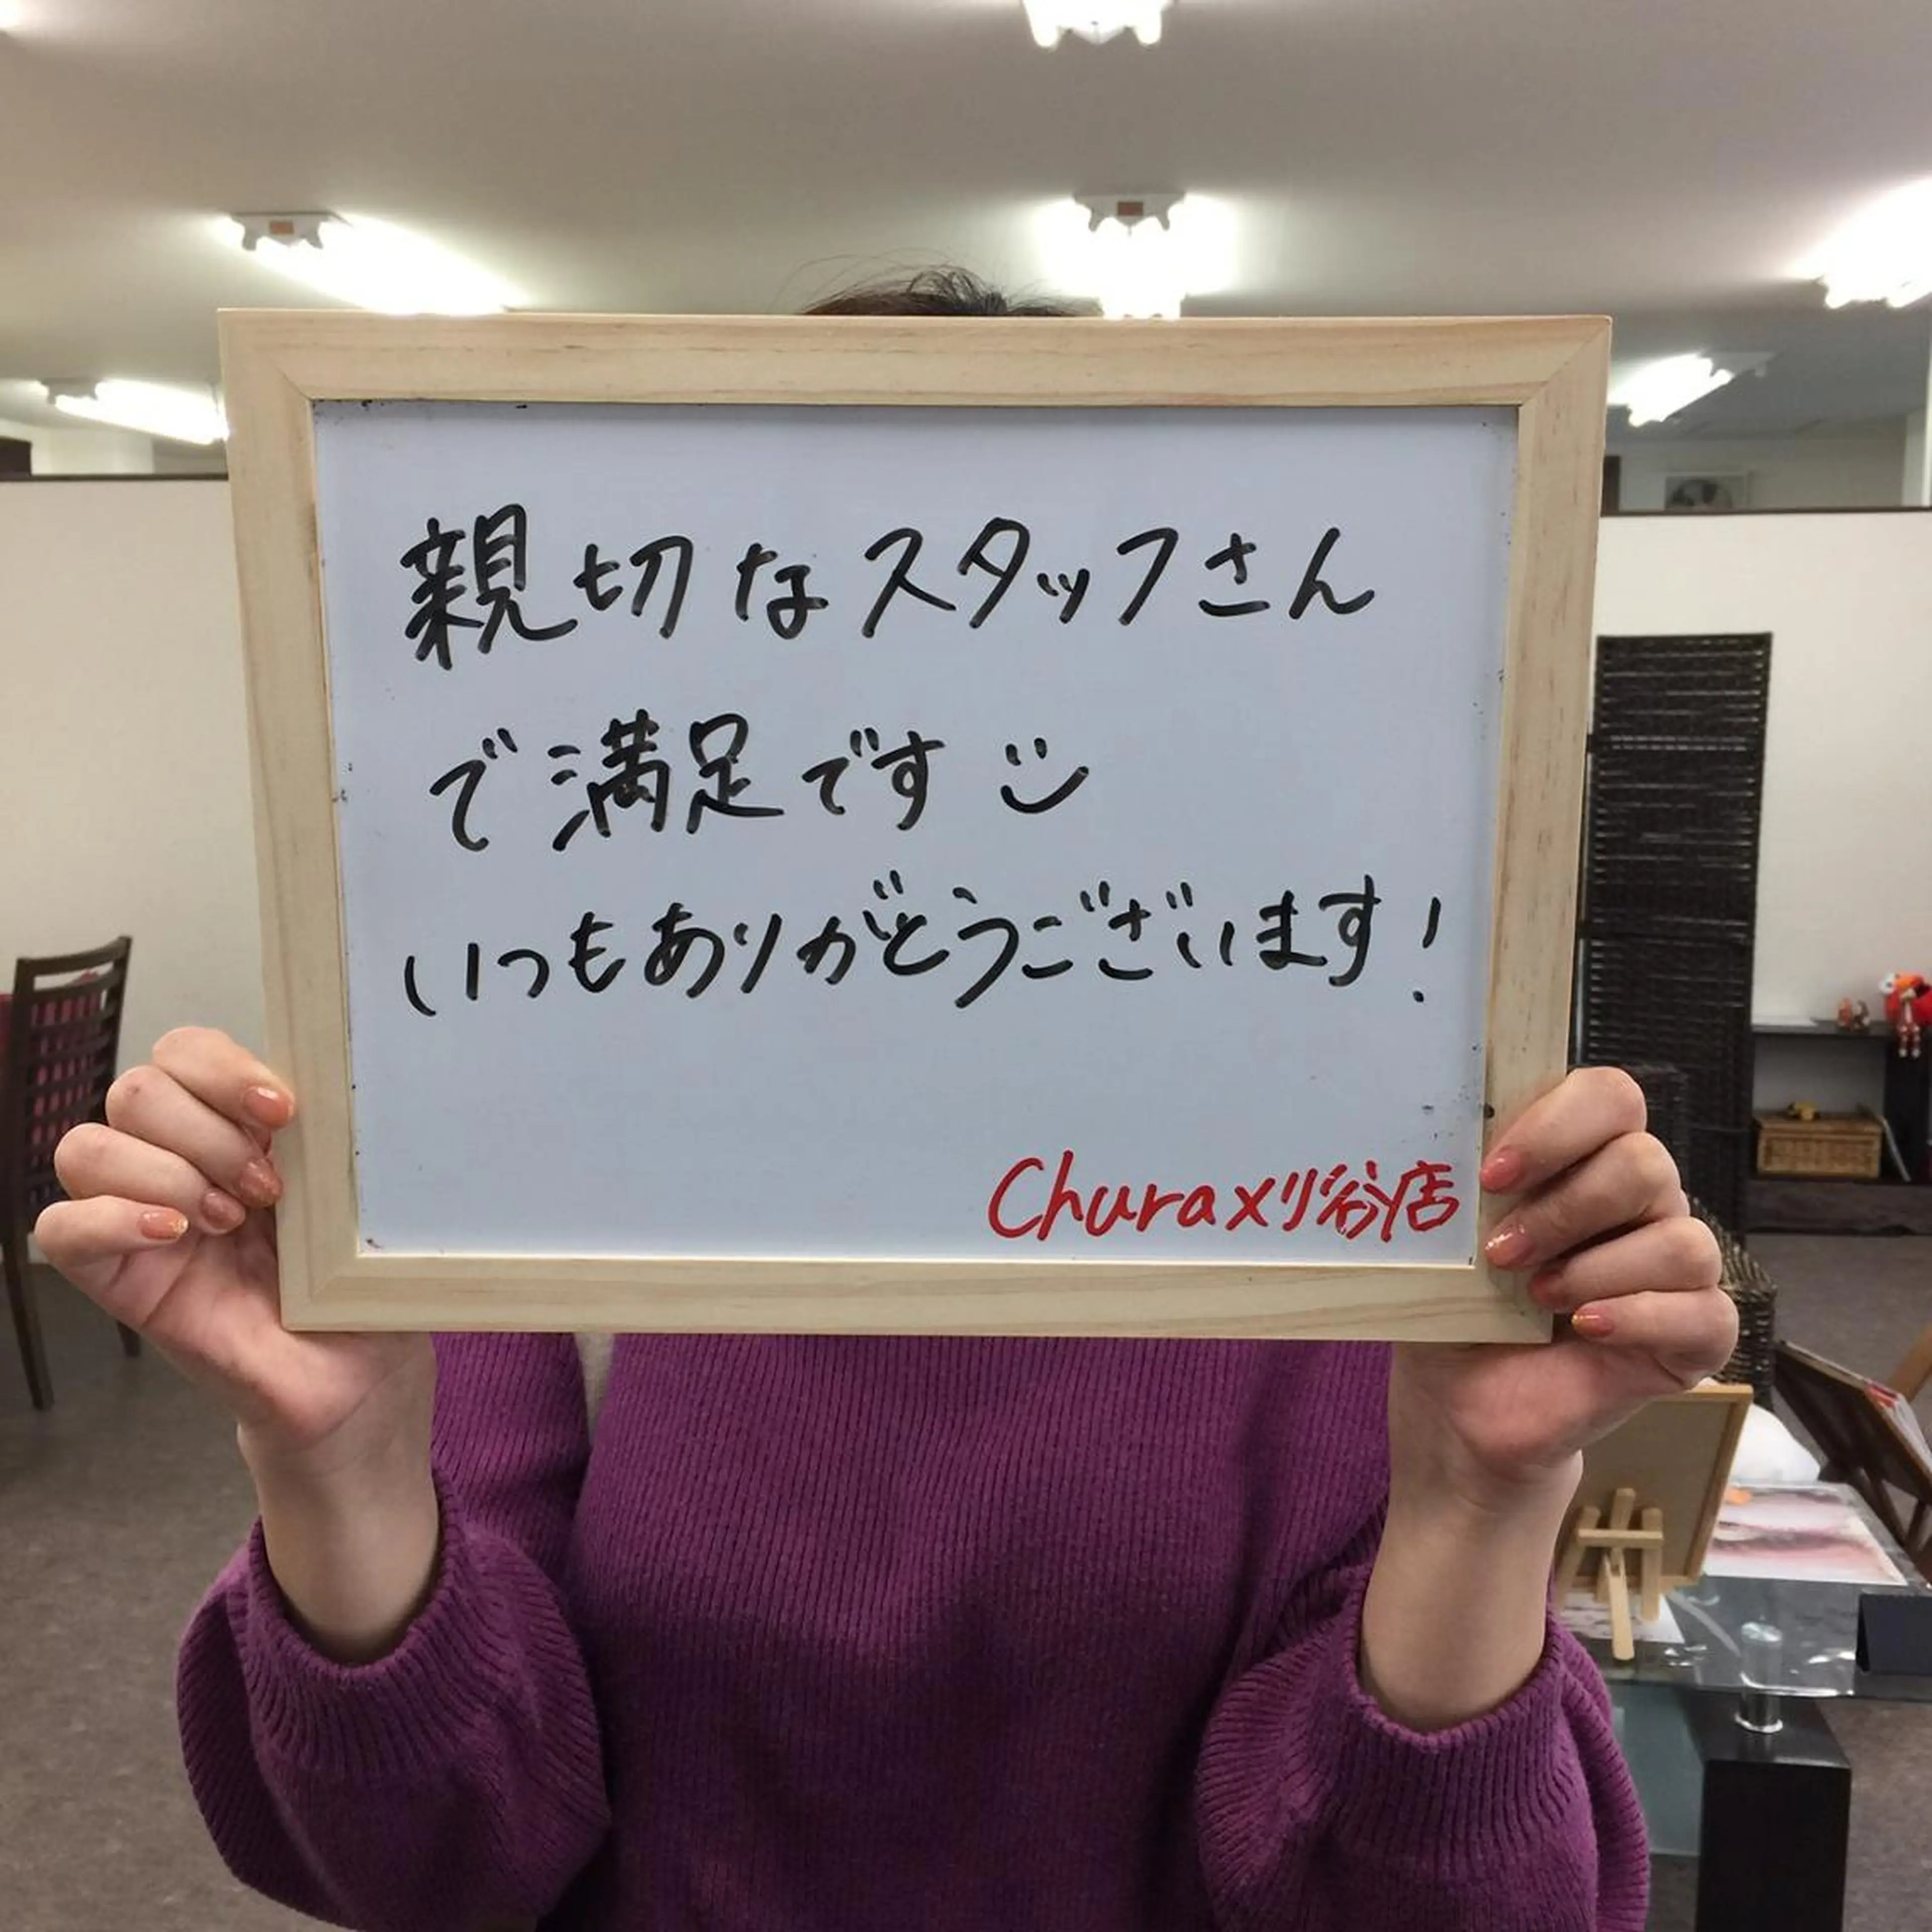 親切なスタッフさん
で満足です
いつもありがとうございます!
Chura刈谷店